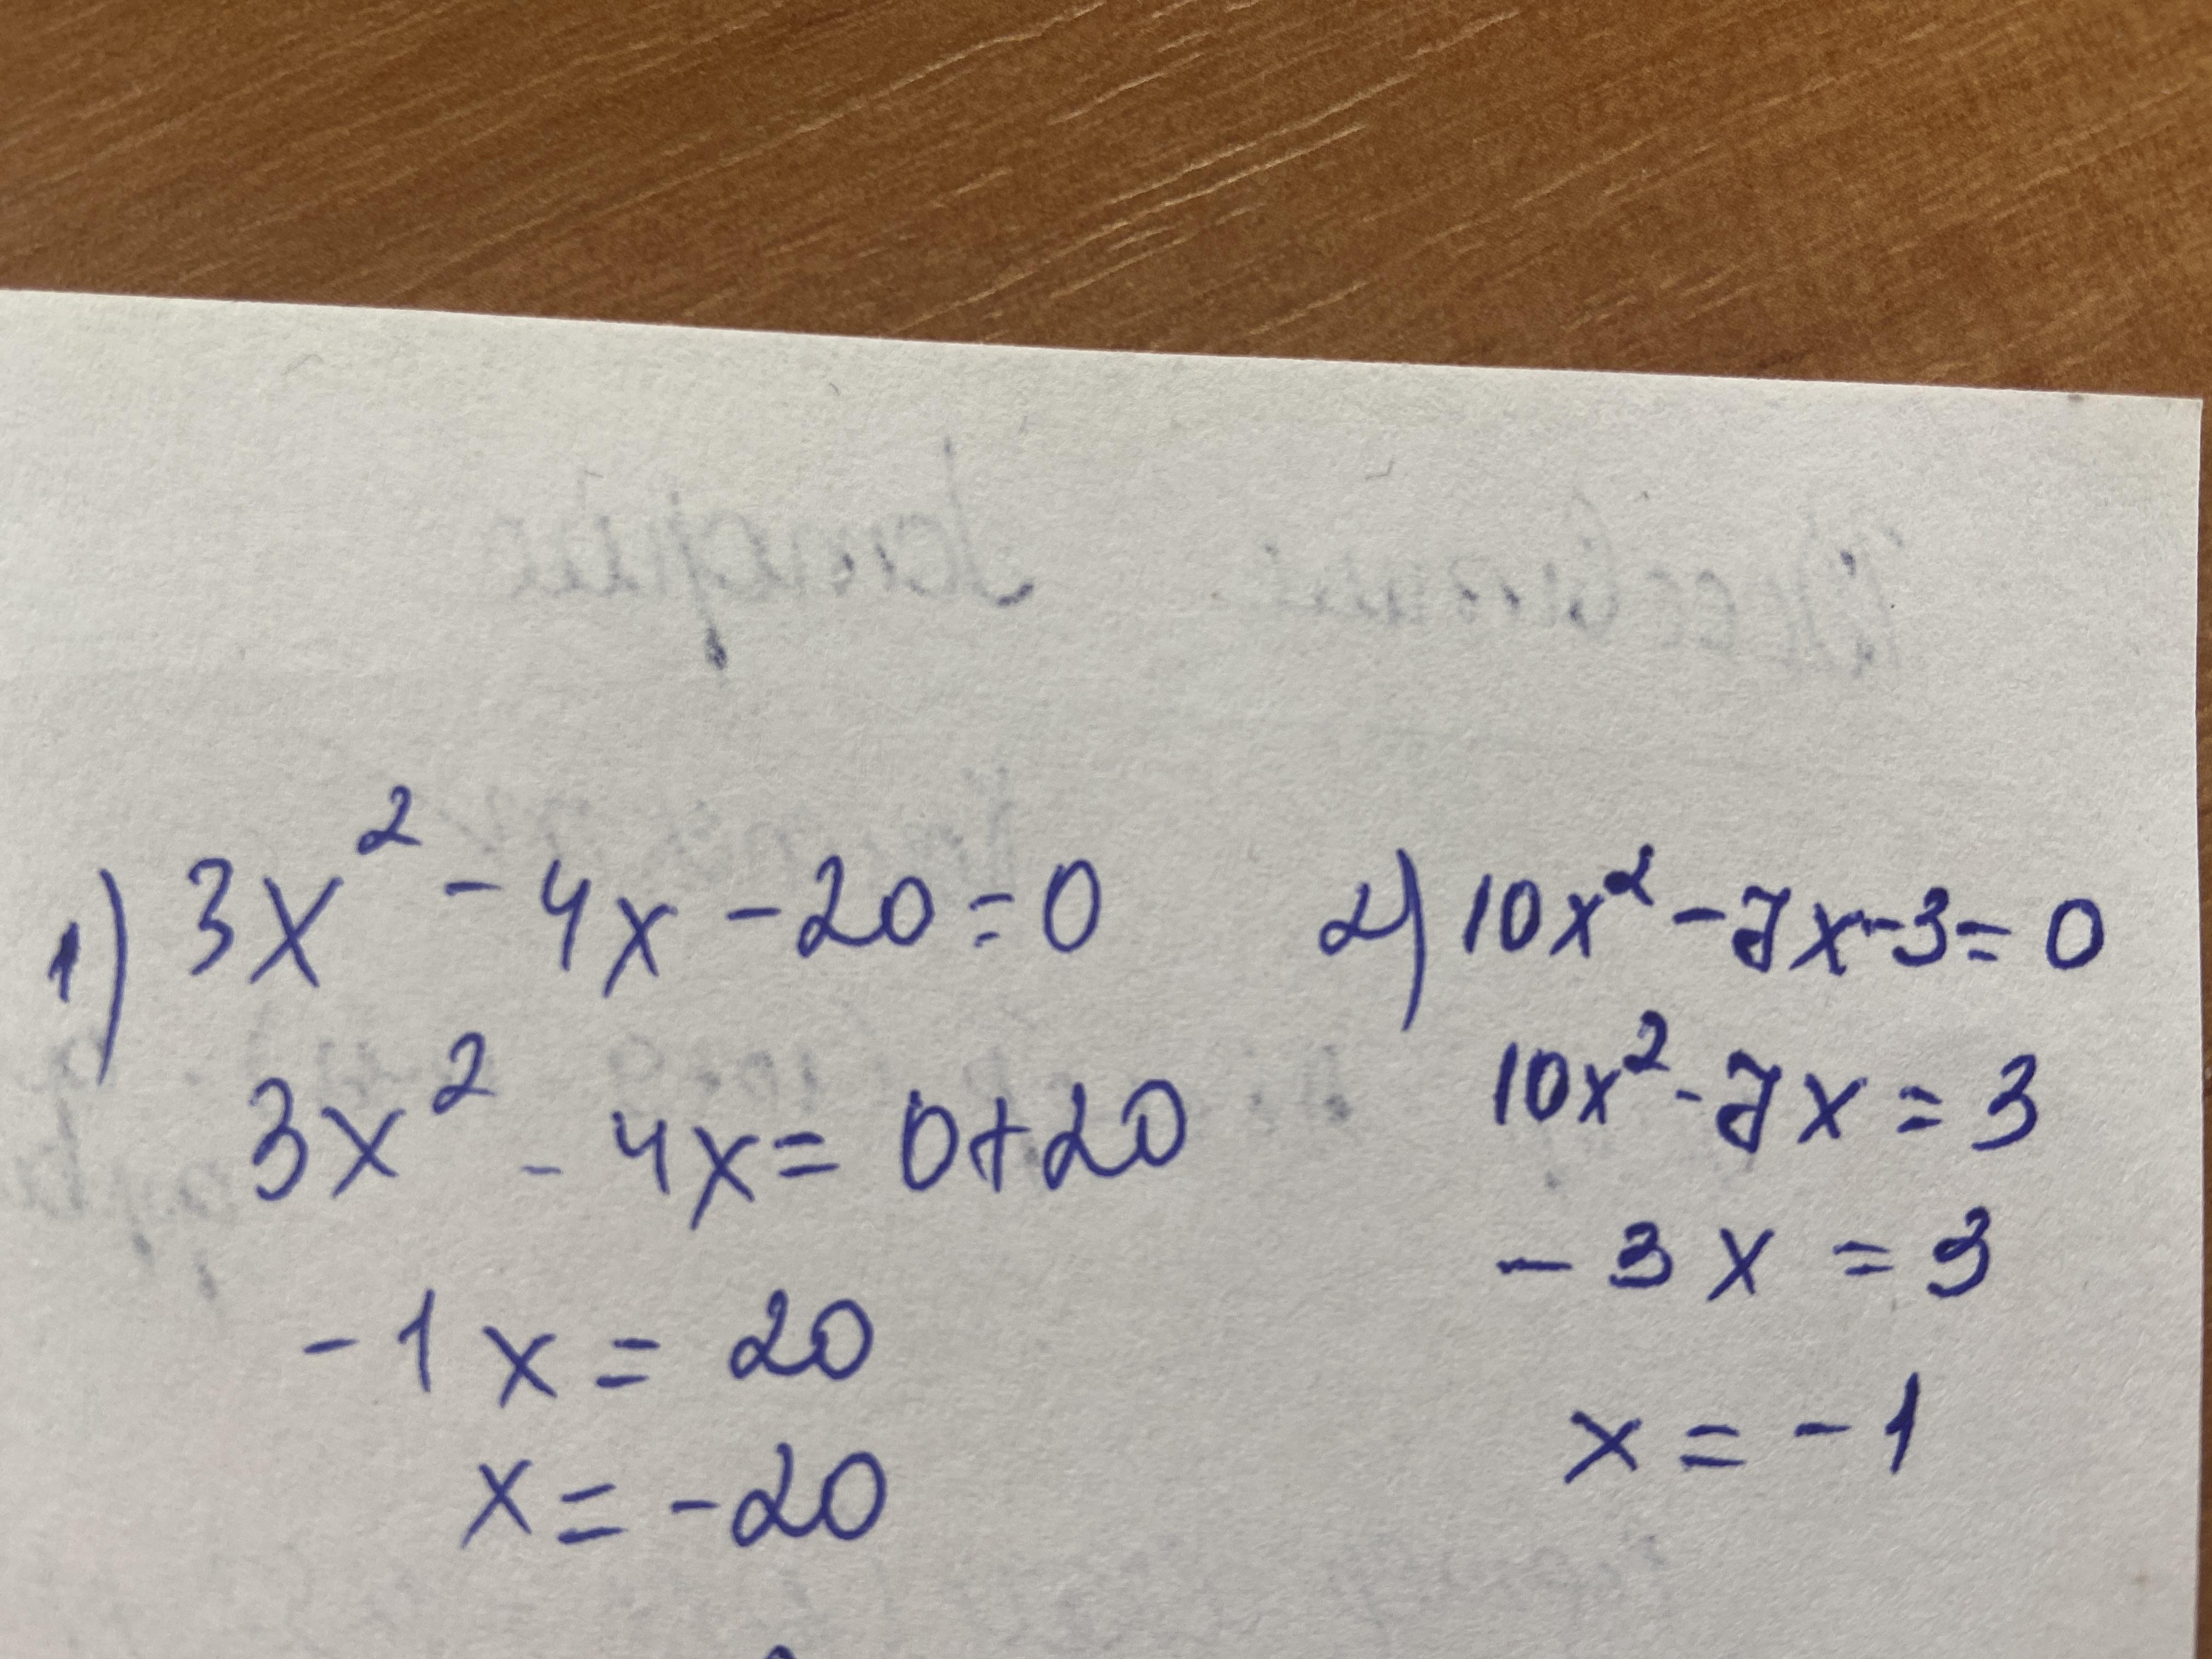 1) 3x² - 4x - 20 = 0
3x² - 4x = 0 + 20
-1x = 20
x = -20
2) 10x² - 7x - 3 = 0
10x² - 7x = 3
-3x = 3
x = -1